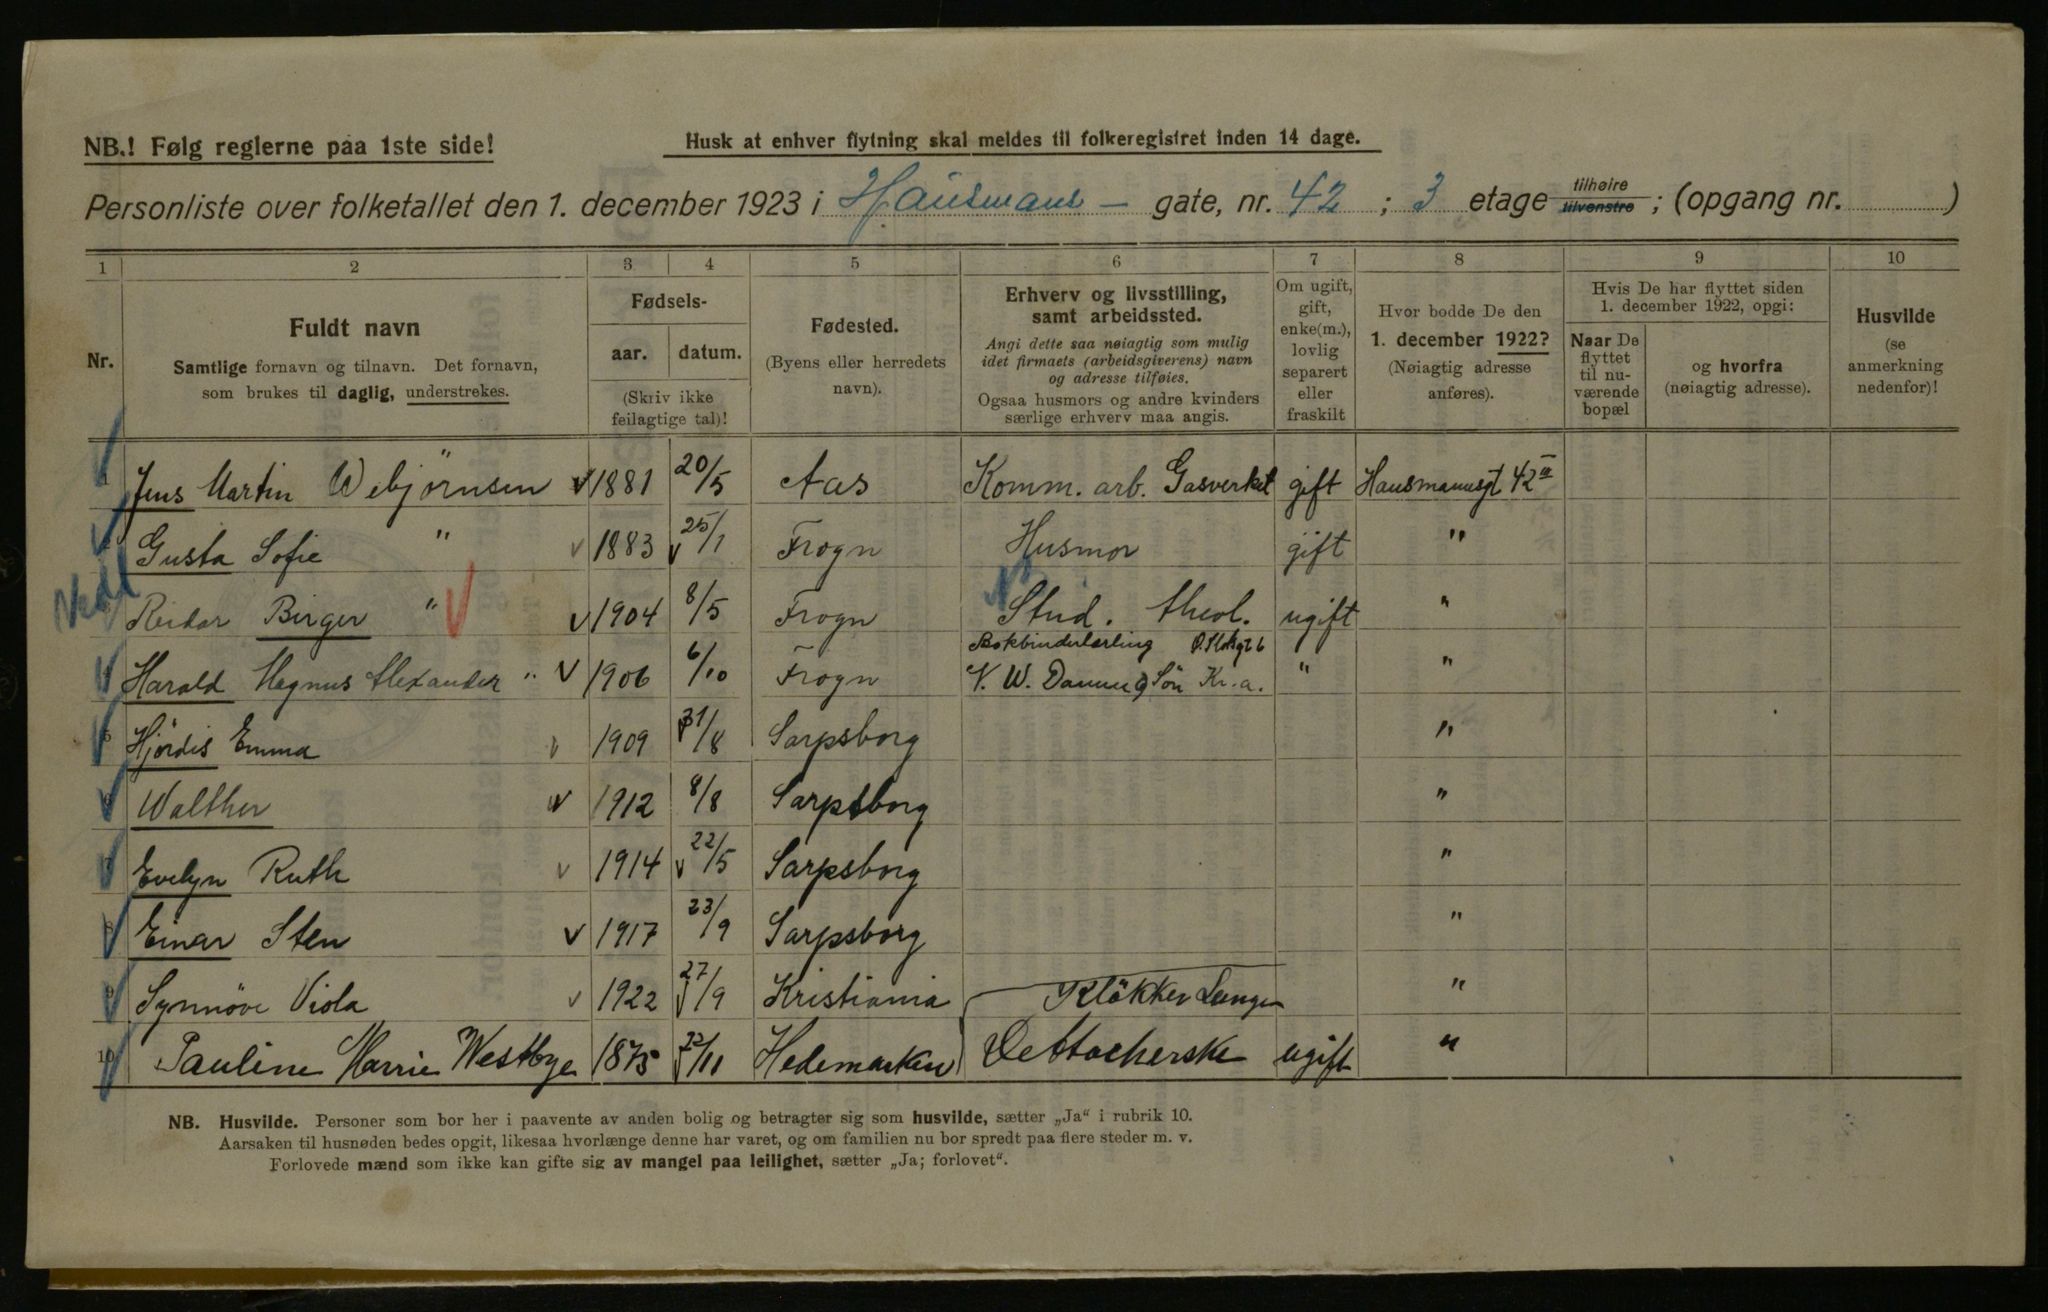 NB.! Følg reglerne paa 1ste side!
Husk at enhver flytning skal meldes til folkeregistret inden 14 dage.
Personliste over folketallet den 1. december 1923 i Hausmans — gate, nr. 42 ; 3 etage tilhøire tilvenstre ; (opgang nr. )
1 2 3 4 5 6 7 8 9 10
Nr.
Fuldt navn
Samtlige fornavn og tilnavn. Det fornavn,
som brukes til daglig, understrekes.
Fødsels-
aar. datum.
(Skriv ikke
feilagtige tal)!
Fødested.
(Byens eller herredets
navn).
Erhverv og livsstilling,
samt arbeidssted.
Angi dette saa nøiagtig som mulig
idet firmaets (arbeidsgiverens) navn
og adresse tilføies.
Ogsaa husmors og andre kvinders
særlige erhverv maa angis.
Om ugift,
gift,
enke(m.),
lovlig
separert
eller
fraskilt
Hvor bodde De den
1. december 1922?
(Nøiagtig adresse
anføres).
Hvis De har flyttet siden
1. december 1922, opgi:
Naar De
flyttet
til nu-
værende
bopæl
og hvorfra
(nøiagtig adresse).
Husvilde
(se
anmerkning
nedenfor)!
Jens Martin Webjörnsen 1881 20/5 Aas Komm. arb. Gasverket gift Hausmannsgt 42 III
Gusta Sofie " 1883 25/1 Frogn Husmor gift "
Reidar Birger " 1904 8/5 Frogn Stud. theol. ugift "
Bokbinderlærling
Harald Magnus Alexander " 1906 6/10 Frogn Søn Kr.a. " "
Hjördis Emma 1909 31/8 Sarpsborg "
Walther 1912 8/8 Sarpsborg "
Evelyn Ruth 1914 22/5 Sarpsborg "
8 Einar Sten 1917 23/9 Sarpsborg "
9 Synnöve Viola 1922 27/9 Kristiania Klökker Langen "
10 Pauline Marrie Westbye 1875 /11 Hedemarken ugift "
NB. Husvilde. Personer som bor her i paavente av anden bolig og betragter sig som husvilde, sætter „Ja“ i rubrik 10.
Aarsaken til husnøden bedes opgit, likesaa hvorlænge denne har varet, og om familien nu bor spredt paa flere steder m. v.
Forlovede mænd som ikke kan gifte sig av mangel paa leilighet, sætter „Ja; forlovet“.